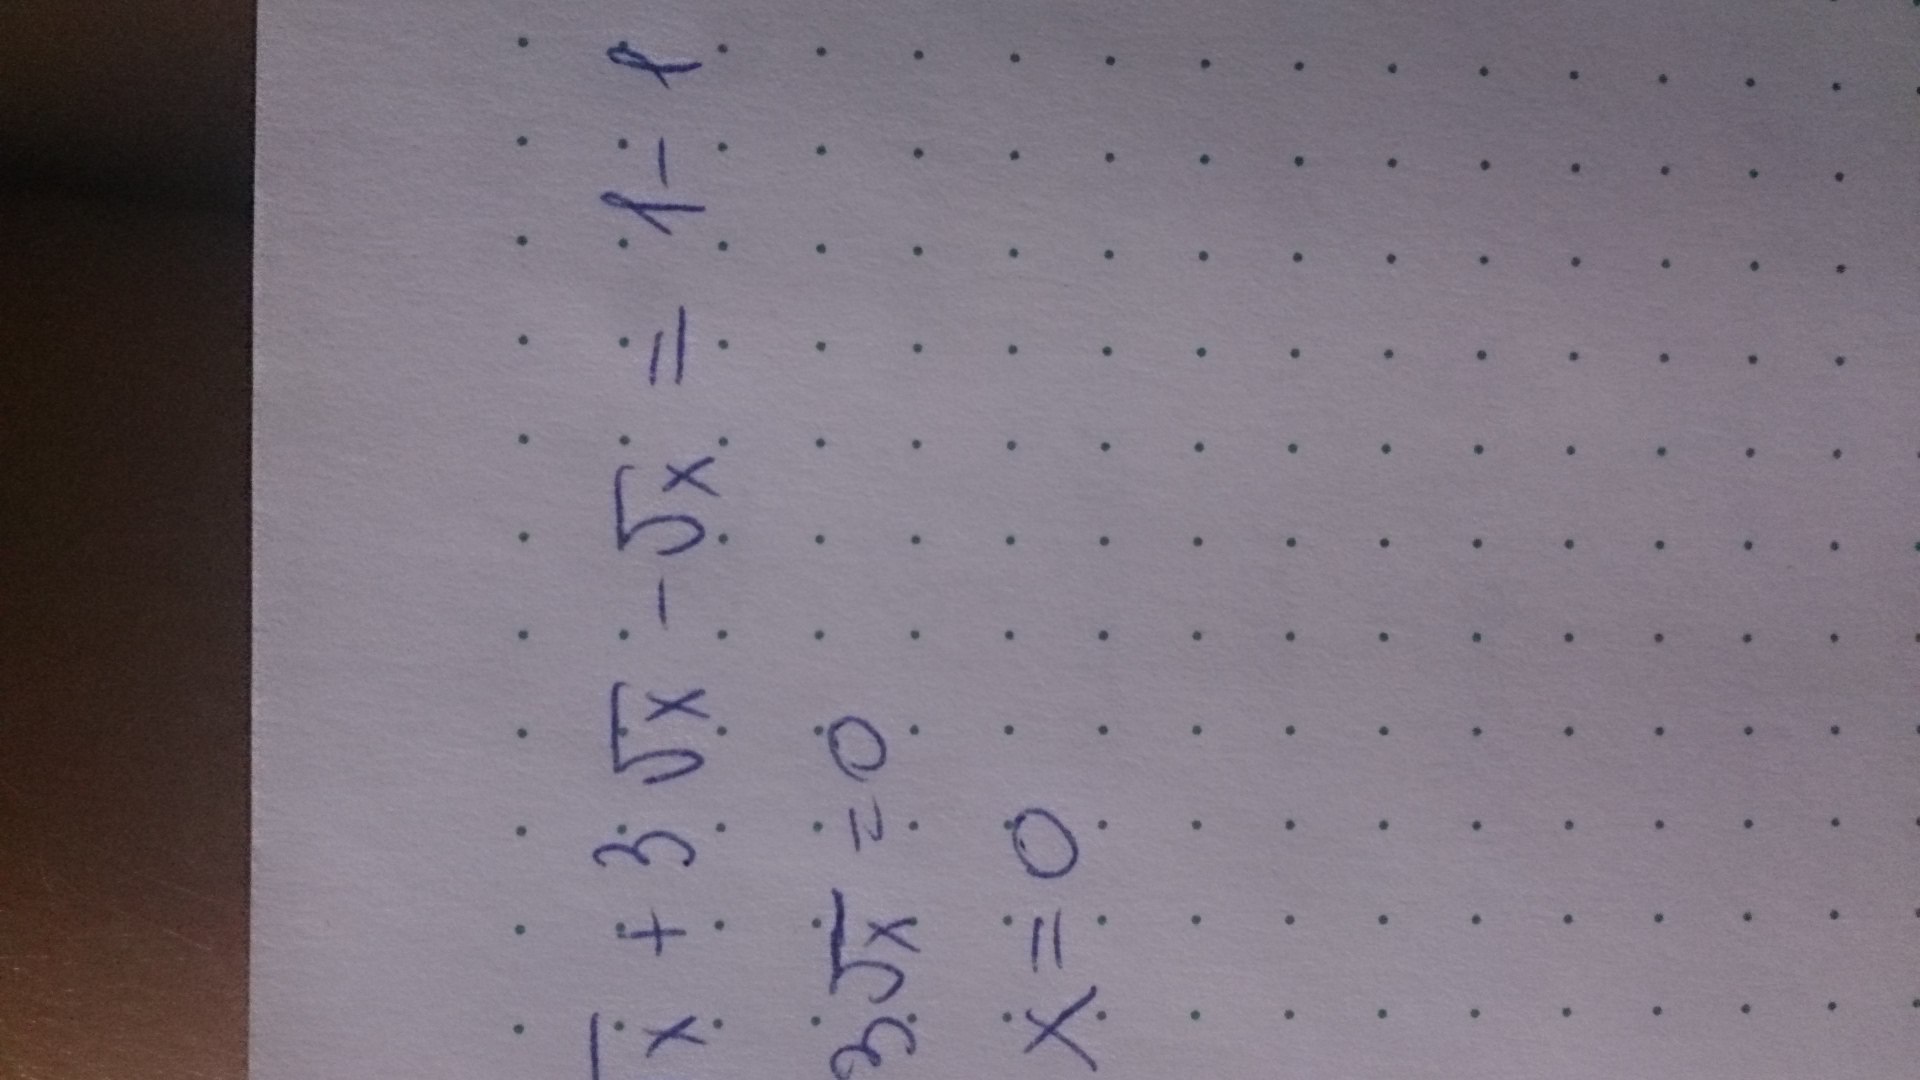 √x + 3√x - √x = 1 - 1
3√x = 0
x = 0